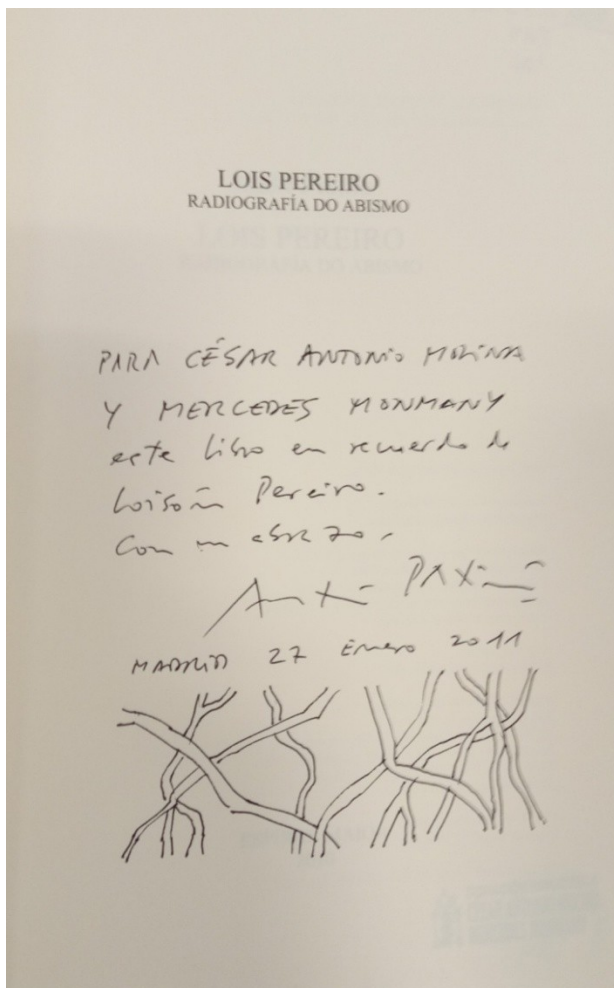 LOIS PEREIRO
RADIOGRAFÍA DO ABISMO
PARA CÉSAR ANTONIO MOLINA
Y MERCEDES MONMANY
este libro en recuerdo de
Loisón Pereiro.
Con un abrazo,
MADRID 27 Enero 2011